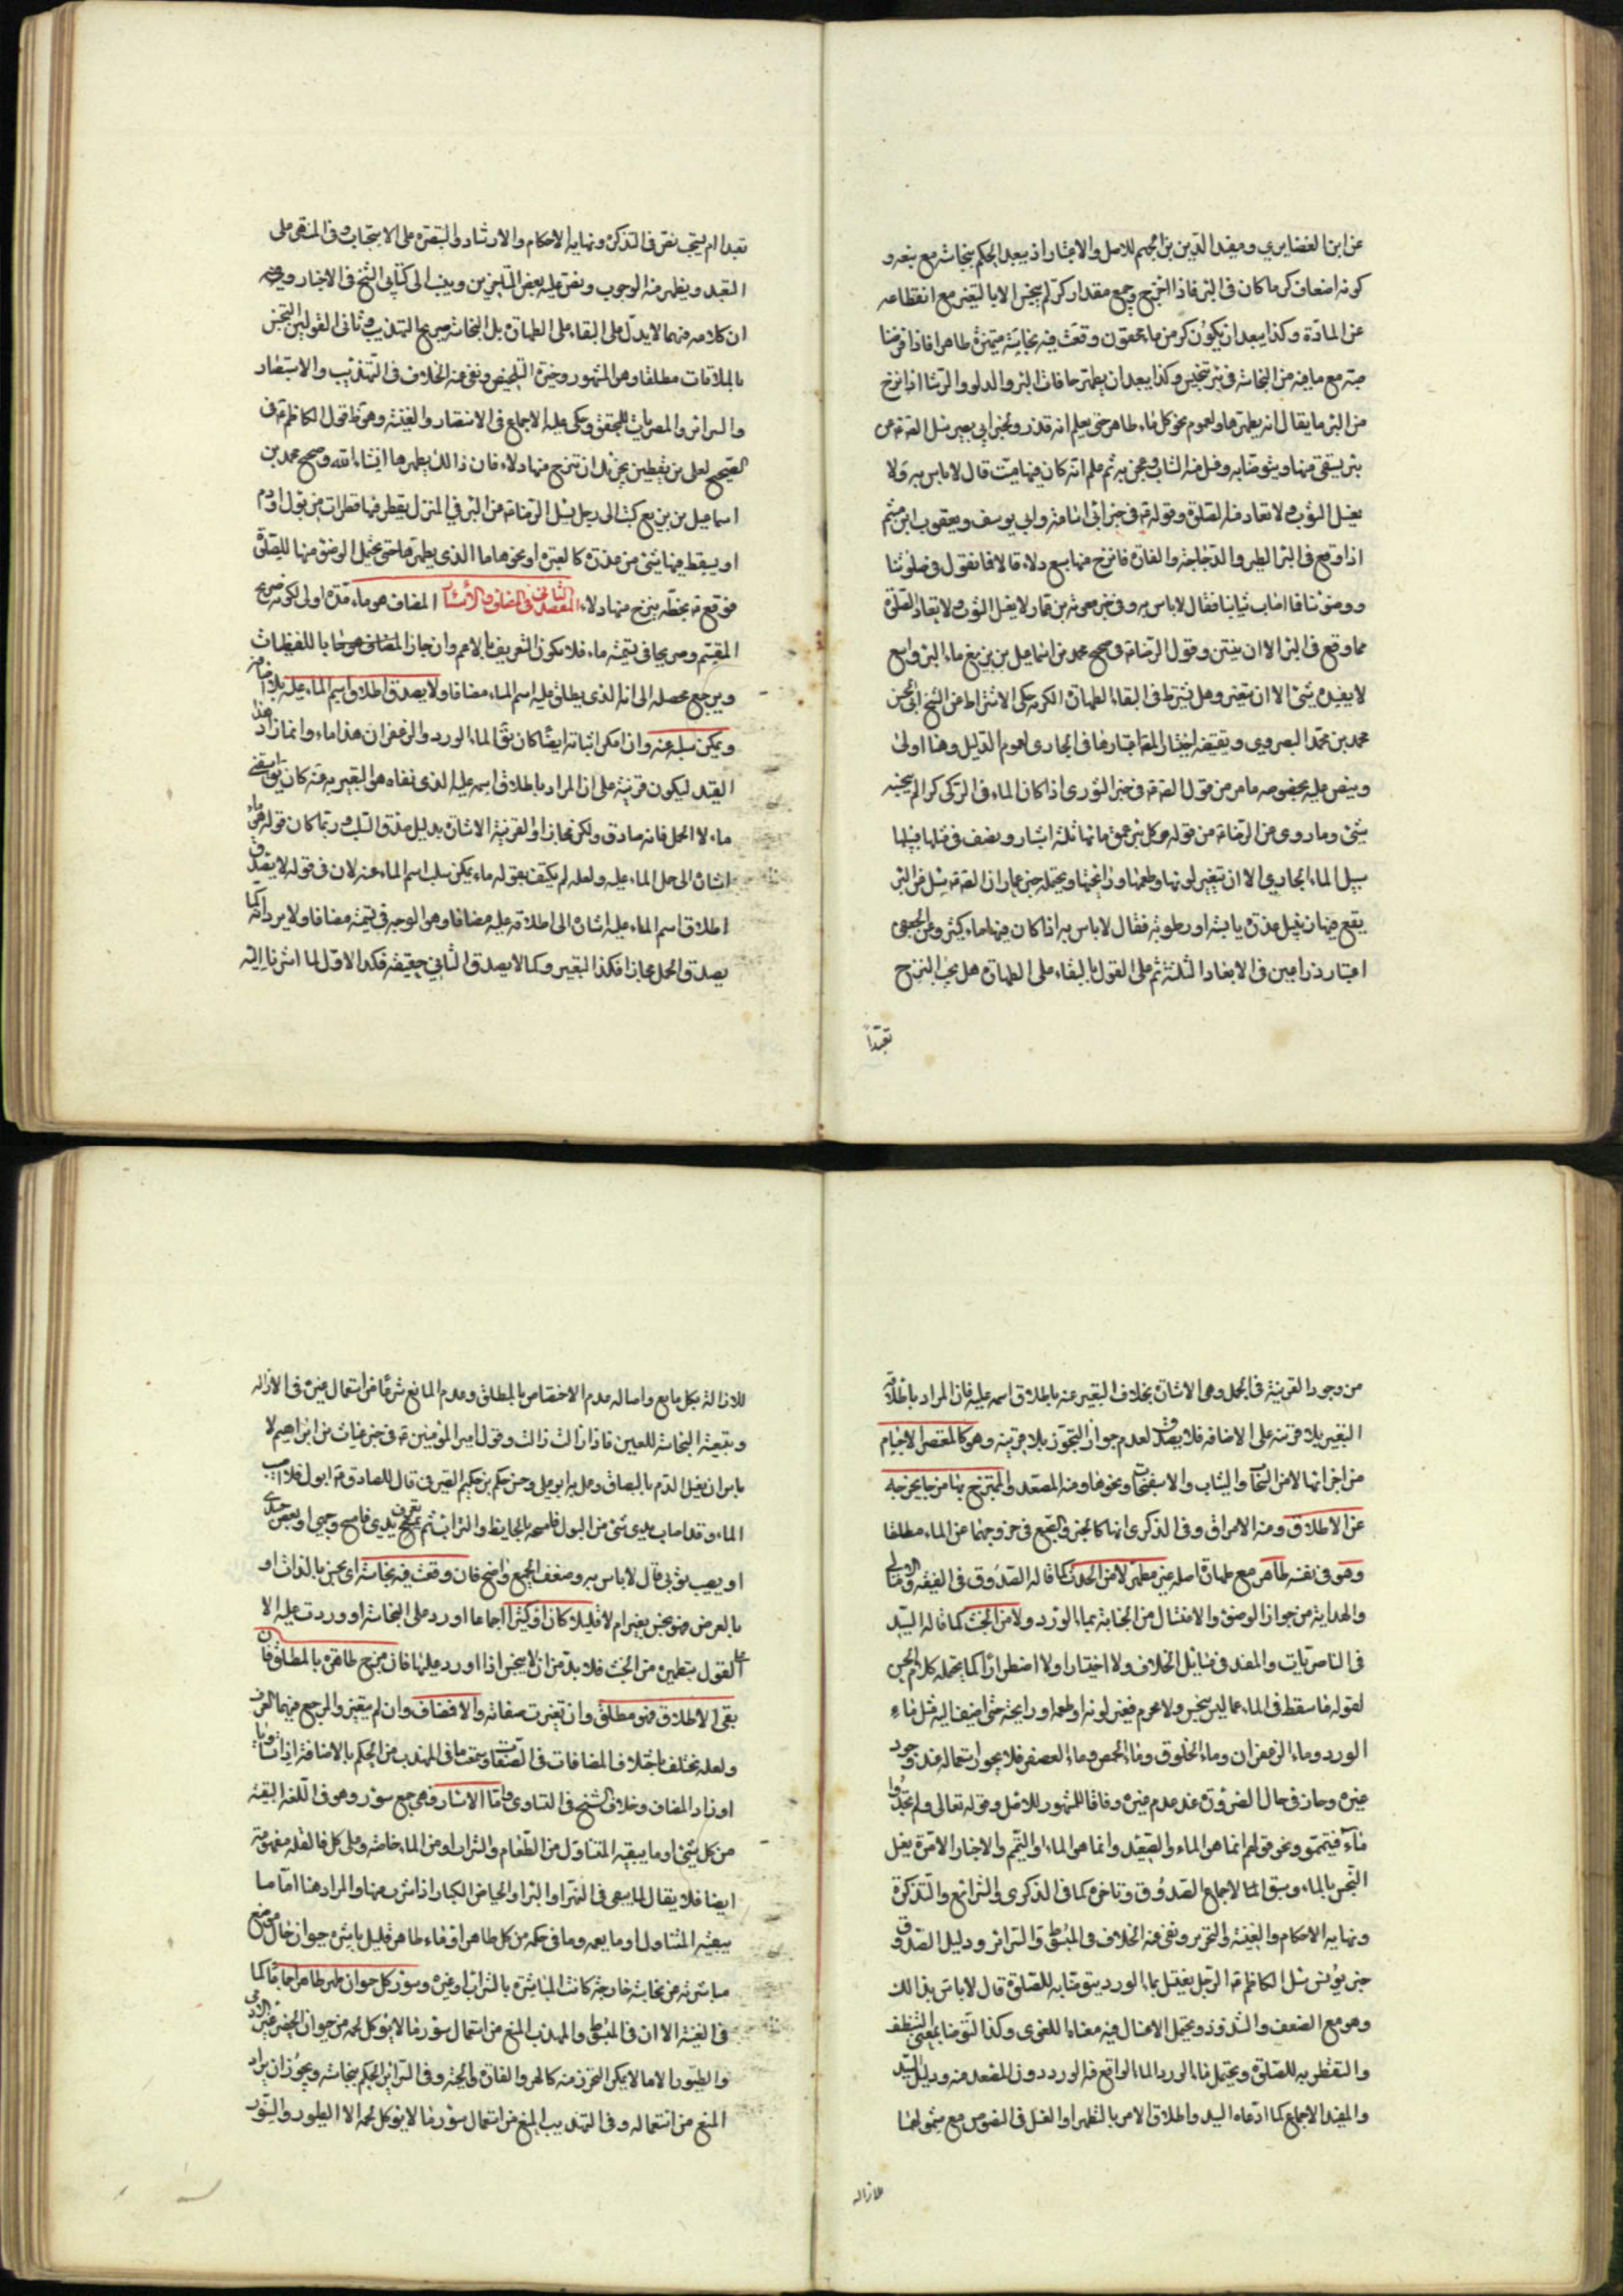 عن ابن الغضايري ومفيد الدين بن الجهم للاصل والاعتبار اذ يبعد الحكم بنجاسته مع نبعه و
كونه اضعاف كر ما كان في البئر فاذا اخرج وجمع مقدار كر لم ينجس الا بالتغير مع انقطاعه
عن المادة وكذا يبعد ان يكون كر من ماء محقون وقعت فيه نجاسة متميزة طاهرا فاذا فرضنا
صبه مع ما فيه من النجاسة في بئر تنجس وكذا يبعد ان يطهر حافات البئر والدلو والرشا اذا نزح
من البئر ما يقال انه يطهرها ولعموم نحو كل ماء طاهر حتى يعلم انه قذر ولخبر ابي بصير سئل الصادق ع عن
بئر يستقى منها ويتوضا به وغسل منه الثياب وعجن به ثم علم انه كان فيها ميت قال لا باس به ولا
يغسل الثوب ولا تعاد منه الصلوة وقوله ع في خبر ابي اسامة وابي يوسف ويعقوب ابن ميثم
اذا وقع في البئر الطير والدجاجة والفارة فانزح منها سبع دلاء قالا فما نقول في صلوتنا
ووضوئنا وما اصاب ثيابنا فقال لا باس به وفي خبر معوية بن عمار لا يغسل الثوب ولا يعاد الصلوة
مما وقع في البئر الا ان ينتن وقول الرضا ع في صحيح محمد بن اسماعيل بن بزيع ماء البئر واسع
لا يفسده شئ الا ان يتغير وهل يشترط في البقاء الطهارة الكرية حكي الاشتراط عن الشيخ ابي الحسن
محمد بن محمد البصروي ويقتضيه اختيار العلامة اعتبارها في الجاري لعموم الدليل وهنا اولى
وينص عليه بخصوصه ما مر من قول الصادق ع في خبر الثوري اذا كان الماء في الركي كرا لم ينجسه
شئ وما روي عن الرضا ع من قوله كل بئر عمق مائها ثلثة اشبار ونصف في مثلها فسبيلها
سبيل الماء الجاري الا ان يتغير لونها وطعمها ورائحتها ويحتمله خبر عمار ان الصادق ع سئل عن البئر
يقع فيها زنبيل عذرة يابسة او رطبة فقال لا باس به اذا كان فيها ماء كثير وعن الجعفي
اعتبار ذراعين في الابعاد الثلثة ثم على القول بالبقاء على الطهارة هل يجب النزح
تعبداً
تعبدا ام يستحب نص في التذكرة ونهاية الاحكام والارشاد والتبصرة على الاستحباب وفي المنتهى على
التعبد ويظهر منه الوجوب ونص عليه بعض المتاخرين وينسب الى كتابي الشيخ في الاخبار وفيه
ان كلامه فيهما لا يدل على البقاء على الطهارة بل النجاسة صريح التهذيب وثاني القولين التنجس
بالملاقات مطلقا وهو المشهور وخيرة التلخيص ونفى عنه الخلاف في التهذيب والاستبصار
والسرائر والمصريات للمحقق وحكى عليه الاجماع في الانتصار والغنية وهو ظ قول الكاظم ع في
الصحيح لعلي بن يقطين يجزيك ان تنزح منها دلاء فان ذلك يطهرها انشاء الله وصحيح محمد بن
اسماعيل بن بزيع كتب الى رجل سئل الرضا ع عن البئر في المنزل يقطر فيها قطرات من بول او دم
او يسقط فيها شئ من عذرة كالبعرة او نحوها ما الذي يطهرها حتى يحل الوضوء منها للصلوة
فوقع ع بخطه ينزح منها دلاء المقصد الثاني في المضاف والاسئار المضاف هو ماء قدمه اولى لكونه صريح
المقسم وصريحا في تسميته ماء فلا يكون التعريف بالاعم وان جاز المضاف هو ما باللفظيات
ويرجع محصله الى انه الذي يطلق عليه اسم الماء مضافا ولا يصدق اطلاق اسم الماء عليه بلا اضافة
ويمكن سلبه عنه وان امكن اثباته ايضا كان يق لماء الورد والزعفران هذا ماء وانما زاد هذا
القيد ليكون قرينة على ان المراد باطلاق اسمه عليه الذي نفاه هو التعبير به عنه كان يق اسقني
ماء لا الحمل فانه صادق ولكن مجازا والقرينة الاشارة بدليل صدق السلب وربما كان قوله هو ماء
اشارة الى حمل الماء عليه ولعله لم يكتف بقوله ماء يمكن سلب اسم الماء عنه لان في قوله لا يصدق
اطلاق اسم الماء عليه اشارة الى اطلاقه عليه مضافا وهو الوجه في تسميته مضافا ولا يرد انه كما
يصدق الحمل مجازا فكذا التعبير وكما لا يصدق الثاني حقيقة فكذا الاول لما اشرنا اليه
من وجود القرينة في الحمل وهي الاشارة بخلاف التعبير عنه باطلاق اسمه عليه فان المراد باطلاقه
التعبير بلا قرينة على الاضافة فلا يصدق لعدم جواز التجوز بلا قرينة وهو كالمعتصر من الاجسام
من اجزائها لا من السحاب والثياب والاسفنجات ونحوها ومنه المصعد والممتزج بها مزجا يخرجه
عن الاطلاق ومنه الامراق وفي الذكرى انها كالحبر والصبغ في خروجها عن الماء مطلقا
وهو في نفسه طاهر مع طهارة اصله غير مطهر لا من الحدث كما قاله الصدوق في الفقيه والامالي
والهداية من جواز الوضوء والاغتسال من الجنابة بماء الورد ولا من الخبث كما قاله السيد
في الناصريات والمفيد في مسائل الخلاف ولا اختيارا ولا اضطرارا كما يحتمله كلام الحسن
لقوله ما سقط في الماء مما ليس بنجس ولا محرم فغير لونه او طعمه او رايحته حتى اضيف اليه مثل ماء
الورد وماء الزعفران وماء الخلوق وماء الحمص وماء العصفر فلا يجوز استعماله عند وجود
غيره وجاز في حال الضرورة عند عدم غيره وفاقا للمشهور للاصل وقوله تعالى ولم تجدوا
ماء فتيمموا ونحو قولهم انما هو الماء والصعيد وانما هو الماء او التيمم والاخبار الامرة بغسل
النجس بالماء وسبق الاجماع الصدوق وتاخره كما في الذكرى والشرائع والتذكرة
ونهاية الاحكام والغنية والتحرير ونفي عنه الخلاف في المبسوط والسرائر ودليل الصدوق
خبر يونس سئل الكاظم ع الرجل يغتسل بماء الورد يتوضا به للصلوة قال لا باس بذلك
وهو مع الضعف والشذوذ ويحتمل الاغتسال فيه معناه اللغوي وكذا التوضا بمعنى التنظف
والتطهر به للصلوة ويحتمل ماء الورد الماء الواقع فيه الورد دون المصعد منه ودليل السيد
والمفيد الاجماع كما ادعاه السيد واطلاق الامر بالتطهر او الغسل في النصوص مع شمولهما
للازالة
للازالة بكل مايع واصالة عدم الاختصاص بالمطلق وعدم المانع شرعا من استعمال غيره في الازالة
وتبعية النجاسة للعين فاذا زالت زالت وقول امير المؤمنين ع في خبر غياث بن ابراهيم لا
باس ان يغسل الدم بالبصاق وعمل به ابو علي وحسن حكم بن حكيم الصيرفي قال للصادق ع ابول فلا اصيب
الماء وقد اصاب يدي شئ من البول فامسحه بالحايط والتراب ثم تعرق يدي فامسح وجهي او بعض جسدي
او يصيب ثوبي قال لا باس به وضعف الجميع واضح فان وقعت فيه نجاسة اي نجس بالذات او
بالعرض فهو نجس تغير ام لا قليلا كان او كثيرا اجماعا اورد على النجاسة او وردت عليه الا
على القول بتطهيره من الخبث فلابد من ان لا ينجس اذا اورد عليها فان مزج طاهره بالمطلق فان
بقي الاطلاق فهو مطلق وان تغيرت صفاته والا فمضاف وان لم يتغير والمرجع فيهما العرف
ولعله يختلف باختلاف المضافات في الصفات وستسمع ما في المهذب من الحكم بالاضافة اذا تساويا
او زاد المضاف وخلاف الشيخ في التساوي واما الاسئار فهي جمع سؤر وهو في اللغة البقية
من كل شئ او ما يبقيه المتناول من الطعام والشراب او من الماء خاصة وعلى كل فالقلة مفهومة
ايضا فلا يقال لما يبقى في النهر او البئر او الحياض الكبار اذا شرب منها والمراد هنا اما ما
يبقيه المتناول او ما يعمه وما في حكمه من كل طاهر او ماء طاهر قليل باشره حيوان خال موضع
مباشرته من نجاسة خارجة كانت المباشرة بالشراب او غيره وسؤر كل حيوان طاهر طاهر اجماعا كما
في الغنية الا ان في المبسوط والمهذب المنع من استعمال سؤر ما لا يؤكل لحمه من حيوان الحضر غير الادمي
والطيور الا ما لا يمكن التحرز منه كالهر والفارة والحية وفي السرائر الحكم بنجاسته ويجوز ان يراد
المنع من استعماله وفي التهذيب المنع من استعمال سؤر ما لا يؤكل لحمه الا الطيور والسنور